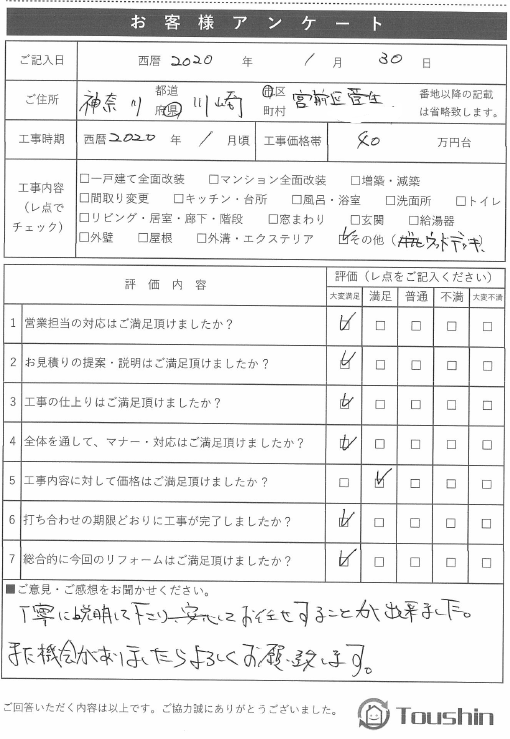 お客様アンケート
ご記入日 西暦 2020 年 1 月 30 日
ご住所 神奈川 都道府県 川崎 市区町村 宮前区菅生 番地以降の記載は省略致します。
工事時期 西暦 2020 年 1 月頃 工事価格帯 40 万円台
工事内容（レ点でチェック）
□一戸建て全面改装 □マンション全面改装 □増築・減築
□間取り変更 □キッチン・台所 □風呂・浴室 □洗面所 □トイレ
□リビング・居室・廊下・階段 □窓まわり □玄関 □給湯器
□外壁 □屋根 □外溝・エクステリア ☑その他（ウッドデッキ）
評価内容 評価（レ点をご記入ください）
大変満足 満足 普通 不満 大変不満
1 営業担当の対応はご満足頂けましたか？ ☑ □ □ □ □
2 お見積りの提案・説明はご満足頂けましたか？ ☑ □ □ □ □
3 工事の仕上りはご満足頂けましたか？ ☑ □ □ □ □
4 全体を通して、マナー・対応はご満足頂けましたか？ ☑ □ □ □ □
5 工事内容に対して価格はご満足頂けましたか？ □ ☑ □ □ □
6 打ち合わせの期限どおりに工事が完了しましたか？ ☑ □ □ □ □
7 総合的に今回のリフォームはご満足頂けましたか？ ☑ □ □ □ □
■ご意見・ご感想をお聞かせください。
丁寧に説明して下さり、安心してお任せすることが出来ました。
また機会がありましたらよろしくお願い致します。
ご回答いただく内容は以上です。ご協力誠にありがとうございました。
Toushin